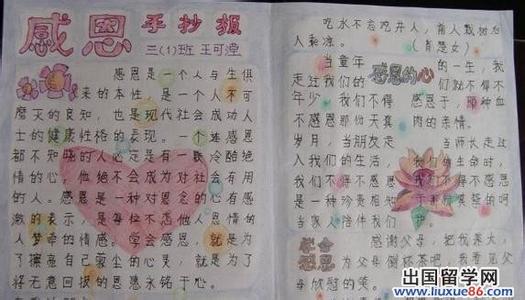 感恩 手抄报
三(1)班 王可滢
感恩是一个人与生俱
来的本性,是一个人不可
磨灭的良知,也是现代社会成功人
士的健康性格的表现。一个连感恩
都不知晓的人必定是有一颗冷酷绝
情的心,他绝不会成为对社会有用
的人。感恩是一种对恩念的心有感
激的表示,是每位不忘他人恩情的
人梦牵的情感。学会感恩,就是为
了擦亮自己蒙尘的心灵,就是为了
将无意回报的恩惠永铭于心。
吃水不忘吃井人,前人栽树后
人乘凉。
当童年 的一生,我
走过我们的 们就不得不
感恩的心
年少 我们不得 感恩于,那种血
不感恩那份天真 肉的亲情。
岁月,当朋友走 当师长走过
入我们的生活, 我们的生命时,
我们不得不感恩 我们不得不感恩
是一种珍贵相他
当家人陪伴我们
学会
感恩
感谢父母,把我养大,
为父母倒杯茶吧,
出国留学网
www.liuxue86.com